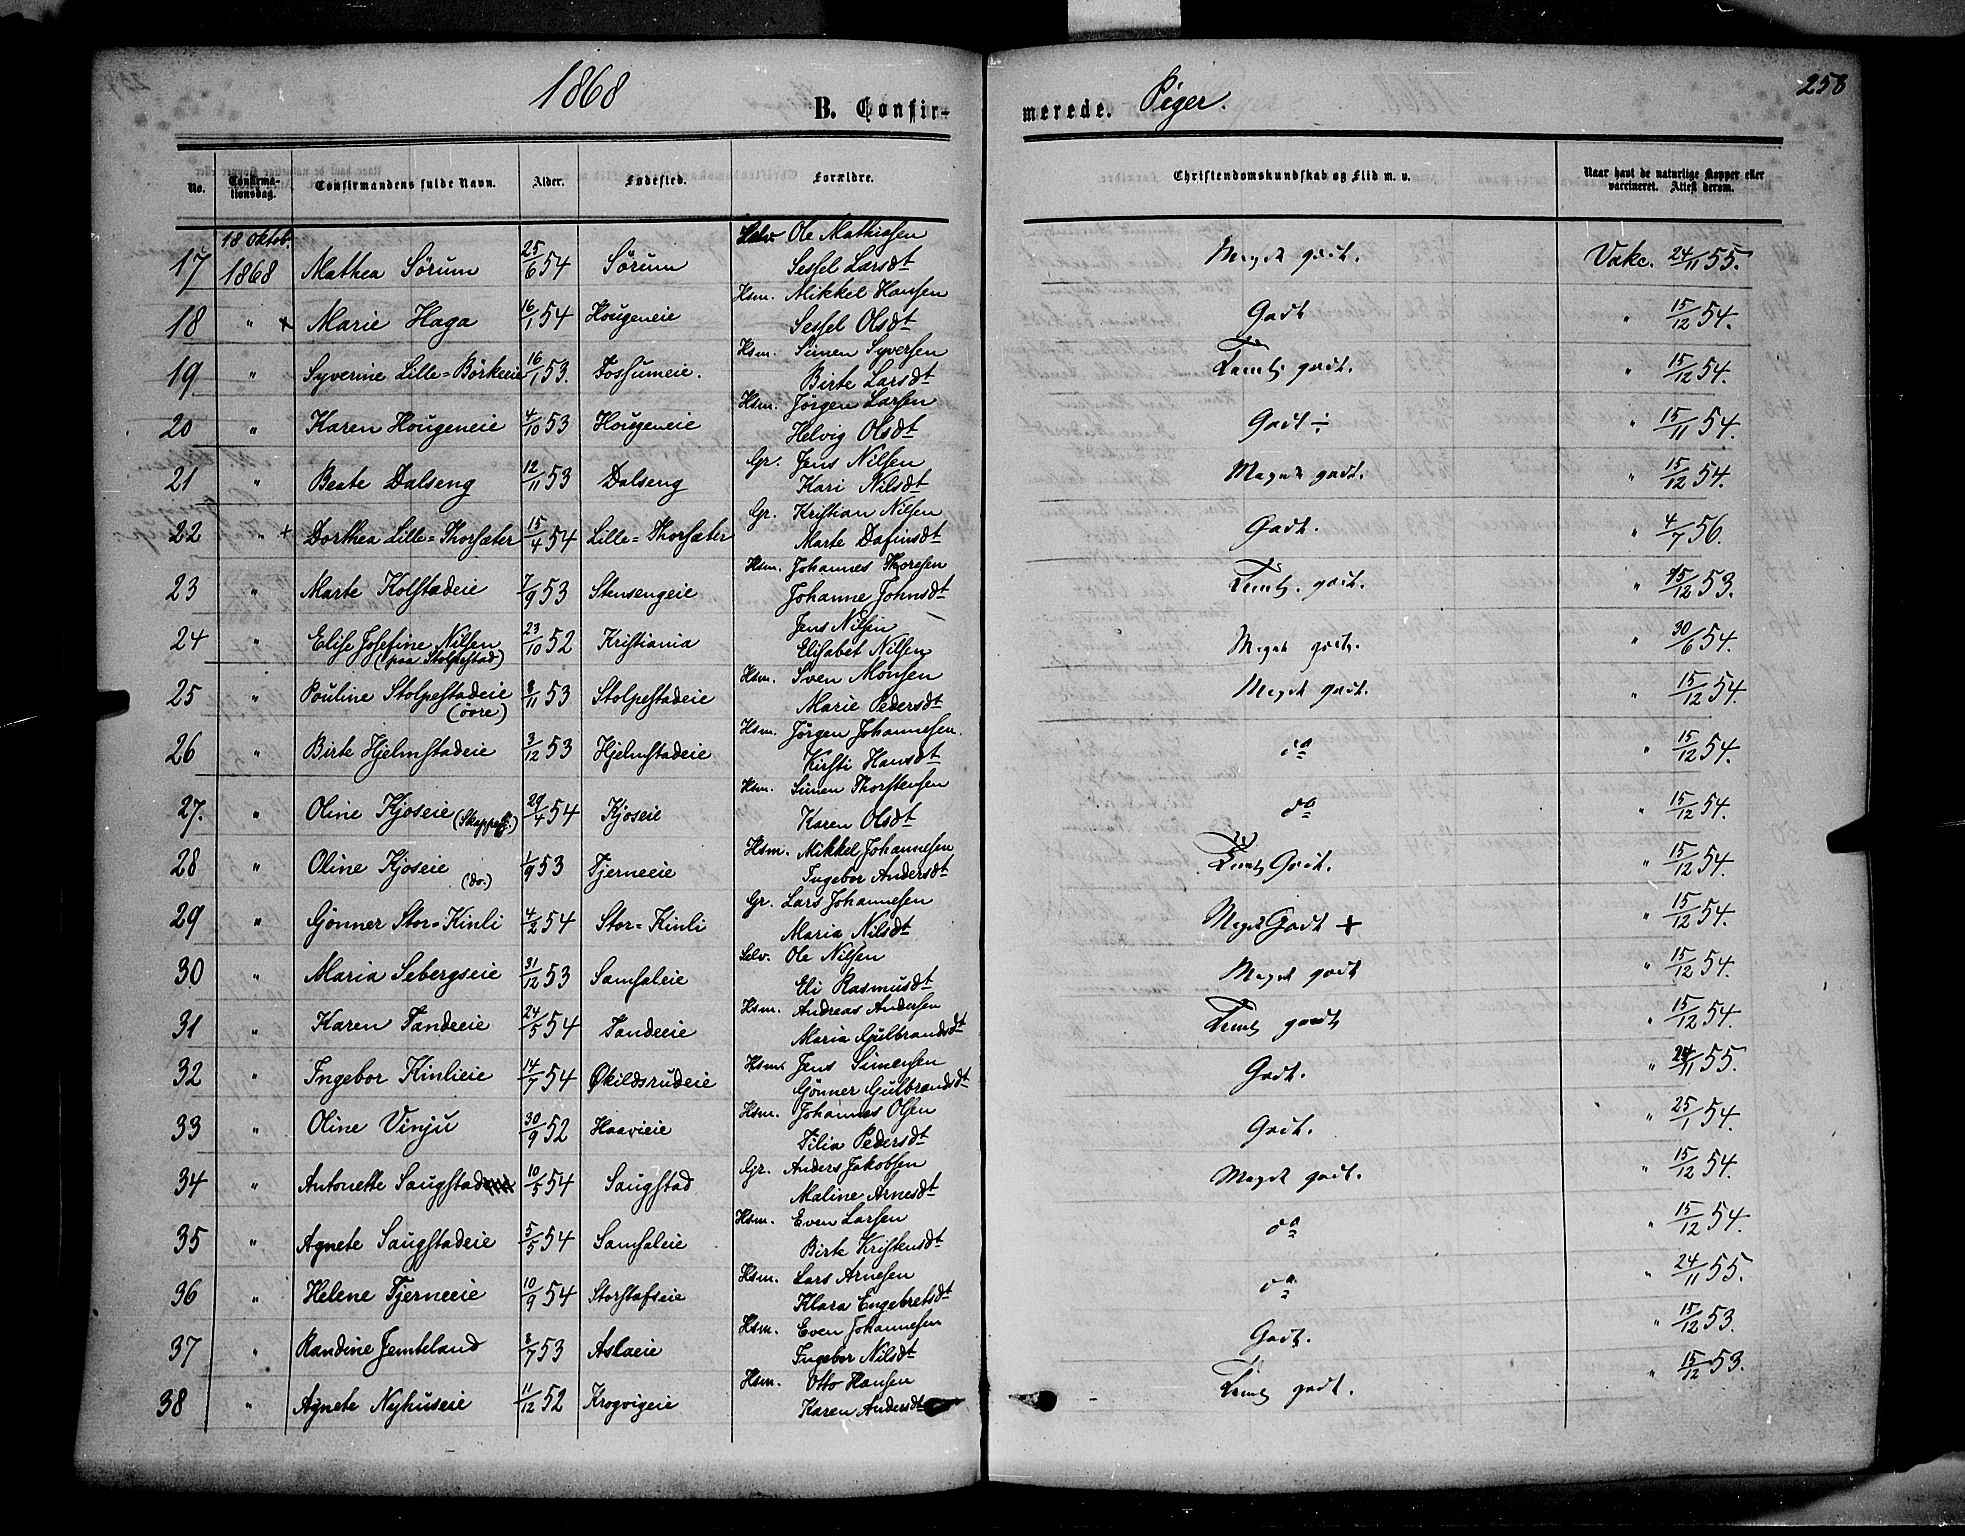 1868 Piger. 258
B. Confir- merede.
No. Confirma-tionsdag. Confirmandens fulde Navn. Alder. Fødested. Forældre. Christendomskundskab og Flid m. v. Naar havt de naturlige Kopper eller vaccineret. Attest derom.
18 Oktob. Selv. Ole Mathiesen
17 1868 Mathea Sörum 25/6 54 Sörum Sessel Larsdt Meget godt. Vakc. 24/11 55.
Hsm. Mikkel Hansen
18 " + Marie Haga 16/1 54 Hougeneie Sessel Olsdt Godt " 15/12 54.
Hsm. Simen Syversen
19 " Syverine Lille=Börkeeie 16/1 53. Fossumeie. Birte Larsdt Temlig godt. " 15/12 54.
Hsm. Jörgen Larsen
20 " Karen Hougeneie 4/10 53 Hougeneie Helvig Olsdt Godt ÷ " 15/11 54.
Gr. Jens Nilsen
21 " Beate Dalseng 12/11 53 Dalseng Kari Nilsdt Meget godt. " 15/12 54.
Gr. Kristian Nilsen
22 " + Dorthea Lille=Thorsæter 15/4 54 Lille=Thorsæter Marte Dafinsdt Godt. " 4/7 56.
Hsm. Johannes Thoresen
23 " Marte Kolstadeie 7/9 53 Stensengeie Johanne Johnsdt Temlig godt. " 15/12 53.
Jens Nilsen
24 " Elise Josefine Nilsen 23/10 52 Kristiania Elisabet Nilsen Meget godt. " 30/6 54.
(paa Stolpestad)
Hsm. Sven Monsen
25 " Pouline Stolpestadeie 8/11 53 Stolpestadeie Marie Pedersdt Meget godt. " 15/12 54.
(övre)
Hsm. Jörgen Johannesen.
26 " Birte Hjelmstadeie 3/12 53 Hjelmstadeie Kirsti Hansdt do " 15/12 54.
Hsm. Simen Thorstensen
27. " Oline Kjoseie 29/4 54 Kjoseie Karen Olsdt do " 15/12 54.
Hsm. Mikkel Johannesen
28 " Oline Kjoseie (do.) 1/9 53 Tjerneeie Ingebor Andersdt Temlig Godt. " 15/12 54.
Gr. Lars Johannesen
29 " Gönner Stor=Kinli 4/2 54 Stor=Kinli Maria Nilsdt Meget Godt + " 15/12 54.
Selv. Ole Nilsen
30 " Maria Sebergseie 31/12 53 Samsaleie Eli Rasmusdt Meget godt " 15/12 54.
Hsm. Andreas Andersen
31 " Karen Tandeeie 24/5 54 Tandeeie Maria Gulbrandsdt Temlig godt " 15/12 54.
Hsm. Jens Simensen
32 " Ingebor Kinlieie 14/7 54 Økildsrudeie Gönner Gulbrandsdt Godt. " 24/11 55.
Hsm. Johannes Olsen
33 " Oline Vinju 30/9 52 Haavieie Tilia Pedersdt Godt. " 25/1 54.
Gr. Anders Jakobsen
34 " Antonette Saugstad 10/5 54 Saugstad Maline Arnesdt Meget godt. " 15/12 54.
Hsm. Even Larsen
35 " Agnete Saugstadeie 5/5 54 Samsaleie Birte Kristensdt do " 15/12 54.
Hsm. Lars Arnesen
36 " Helene Tjerneeie 10/9 54 Storstafseie Klara Engebretsdt do " 24/11 55.
Hsm. Even Johannesen
37 " Randine Jemteland 8/7 53 Aslaeie Ingebor Nilsdt Godt. " 15/12 53.
Hsm. Otto Hansen
38 " Agnete Nyhuseie 11/12 52 Krogvigeie Karen Andersdt Temlig godt. " 15/12 53.